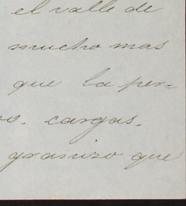 el valle de
mucho mas
que la per-
o. cargas.
granizo que